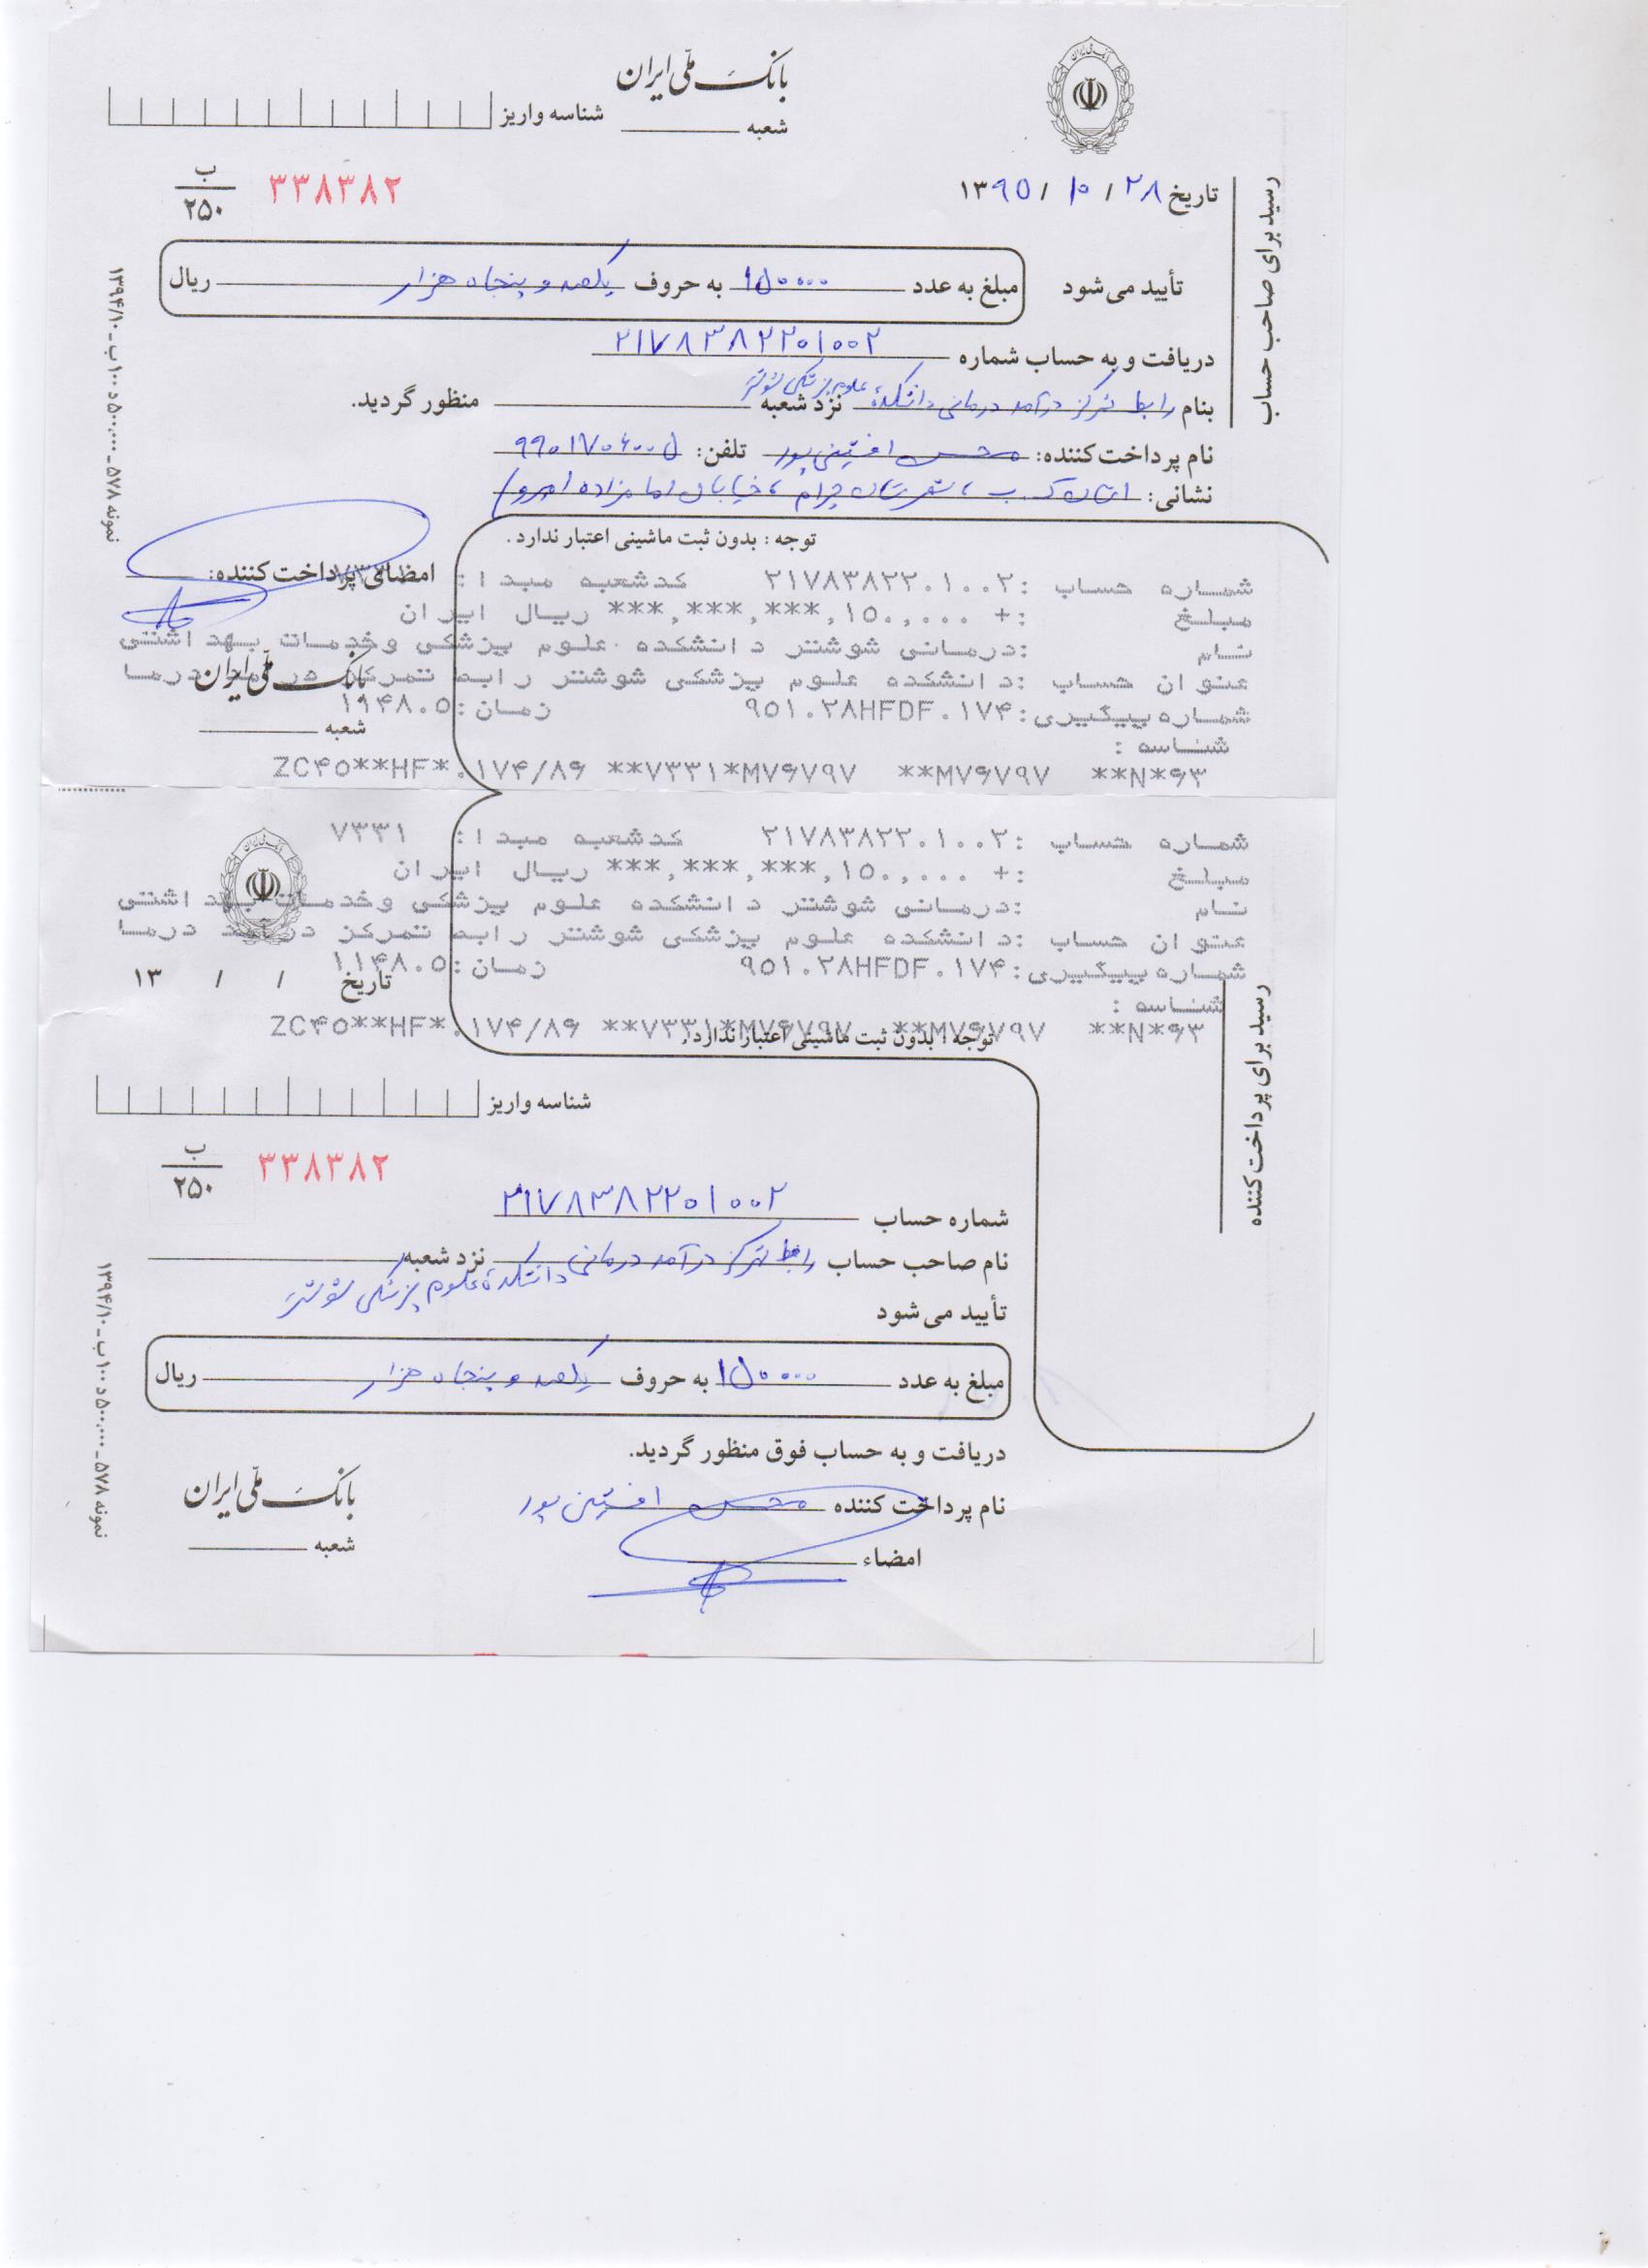 بانک ملّی ایران
شعبه
شناسه واریز
رسید برای صاحب حساب
تاریخ ۲۸ / ۱۰ / ۱۳۹۵
۳۳۸۳۸۲
ب
۲۵۰
تأیید می‌شود مبلغ به عدد ۱۵۰۰۰۰ به حروف یکصد و پنجاه هزار ریال
دریافت و به حساب شماره ۲۱۷۸۳۸۲۲۰۱۰۰۲
بنام رابط تمرکز درآمد درمانی دانشکدهٔ علوم پزشکی شوشتر نزد شعبه منظور گردید.
نام پرداخت کننده: محسن تلفن: ۹۹۰۱۷۰۶۰۰۵
نشانی: استان ک. ب ، شهرستان چرام ، خیابان امامزاده
توجه : بدون ثبت ماشینی اعتبار ندارد .
امضای پرداخت کننده:
شماره حساب :۲۱۷۸۳۸۲۲۰۱۰۰۲ کدشعبه مبدا: ۷۳۳۱
مبلغ :+ ***,***,***,۱۵۰,۰۰۰ ریال ایران
نام :درمانی شوشتر دانشکده علوم پزشکی وخدمات بهداشتی
عنوان حساب :دانشکده علوم پزشکی شوشتر رابط تمرکز درآمد درما
شماره پیگیری:۹۵۱۰۲۸HFDF۰۱۷۴ زمان:۱۱۴۸۰۵
شناسه :
ZC۴۵**HF*۰۱۷۴/۸۶ **۷۳۳۱*M۷۶۷۹۷ **M۷۶۷۹۷ **N*۶۳
بانک ملّی ایران
شعبه
نمونه ۵۷۸ ـ ۵۰۰.۰۰۰ د ۱۰۰ ب ـ ۱۳۹۴/۱۰
شماره حساب :۲۱۷۸۳۸۲۲۰۱۰۰۲ کدشعبه مبدا: ۷۳۳۱
مبلغ :+ ***,***,***,۱۵۰,۰۰۰ ریال ایران
نام :درمانی شوشتر دانشکده علوم پزشکی وخدمات بهداشتی
عنوان حساب :دانشکده علوم پزشکی شوشتر رابط تمرکز درآمد درما
شماره پیگیری:۹۵۱۰۲۸HFDF۰۱۷۴ زمان:۱۱۴۸۰۵
تاریخ / / ۱۳
شناسه :
ZC۴۵**HF*۰۱۷۴/۸۶ **۷۳۳۱*M۷۶۷۹۷ **M۷۶۷۹۷ **N*۶۳
توجه : بدون ثبت ماشینی اعتبار ندارد.
رسید برای پرداخت کننده
شناسه واریز
۳۳۸۳۸۲
ب
۲۵۰
شماره حساب ۲۱۷۸۳۸۲۲۰۱۰۰۲
نام صاحب حساب رابط تمرکز درآمد درمانی دانشکدهٔ علوم پزشکی شوشتر نزد شعبه
تأیید می‌شود
مبلغ به عدد ۱۵۰۰۰۰ به حروف یکصد و پنجاه هزار ریال
دریافت و به حساب فوق منظور گردید.
نام پرداخت کننده محسن
امضاء
بانک ملّی ایران
شعبه
نمونه ۵۷۸ ـ ۵۰۰.۰۰۰ د ۱۰۰ ب ـ ۱۳۹۴/۱۰